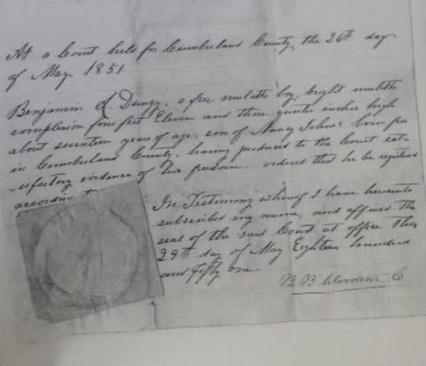 At a Court held for Cumberland County the 26th day
of May 1851
Benjamin a free mulatto boy, bright mulatto
complexion four feet Eleven and three quarter inches high
about seventeen years of age, son of Nancy born free
in Cumberland County, having produced to the Court sat-
isfactory evidence of his freedom ordered that he be registered
according to
In Testimony whereof I have hereunto
subscribed my name, and affixed the
seal of the said Court at office this
29th day of May Eighteen hundred
and fifty one.
B B Woodson C